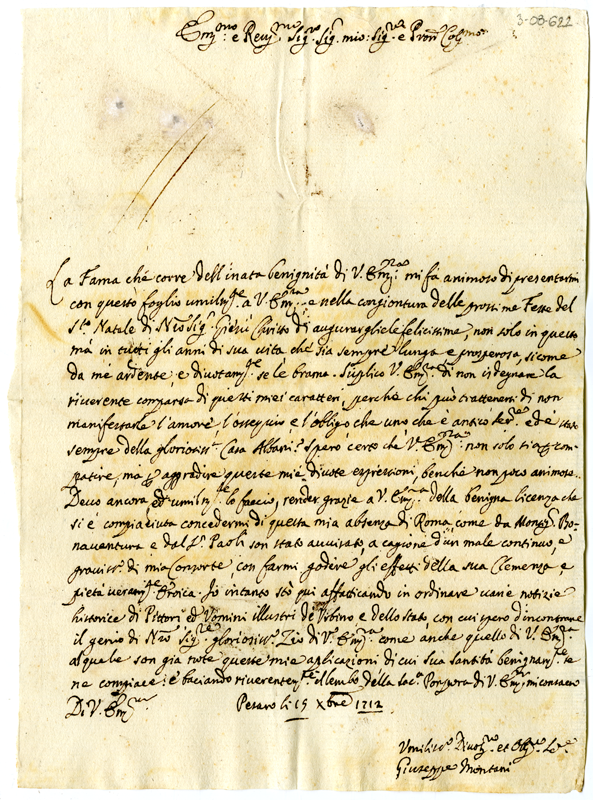 3-08-622
Em.mo e Rev.mo Sig.re Sig. mio: Sig.re e Pron Col.mo
La Fama che corre dell'inata benignità di V. Em.za mi fà animoso di presentarmi
con questo foglio umilm.te a V. Em.za, e nella congiontura delle prossime Feste del
S.to Natale di Nro Sig.re Giesù Christo di augurargliele felicissime, non solo in questo
mà in tutti gli anni di sua vita che sia sempre lunga e prosperosa, sicome
da mè ardente, e divotam.te se le brama. Suplico V. Em.za di non isdegnare la
riverente comparsa di questi miei caratteri, perche chi può trattenersi di non
manifestarle l'amore l'ossequio, e l'obligo che uno che è antico ser.re ed è stato
sempre della glorioss.a Casa Albani. Sperò certo che V. Em.za non solo si com-
patire, ma aggradire queste mie divote espressioni, benche non poco animose.
Devo ancora, ed umilm.te lo faccio, render grazie a V. Em.za della benigna licenza che
si è compiaciuta concedermi di questa mia absenza di Roma, come da Mons.r Bo-
naventura e dal S.r Paoli son stato avvisato, a cagione d'un male continuo, e
graviss.o di mia Consorte, con farmi godere gli effetti della sua Clemenza, e
pietà veram.te Eroica. Io intanto stò qui affaticando in ordinare varie notizie
historice di Pittori ed Uomini illustri de Urbino e dello stato, con cui spero d'incontrare
il genio di Nro Sig.re glorioriss.o Zio di V. Em.za come anche quello di V. Em.za
al quale son già note queste mie aplicazioni di cui sua santità benignam.te se
ne compiace: e baciando riverentem.te il lembo della sac.a Porpora di V. Em.za mi consacro
Di V. Em.za Pesaro li 15 Xbre 1712.
Umiliss.o Divot.mo et Obl.mo Ser.re
Giuseppe Montani